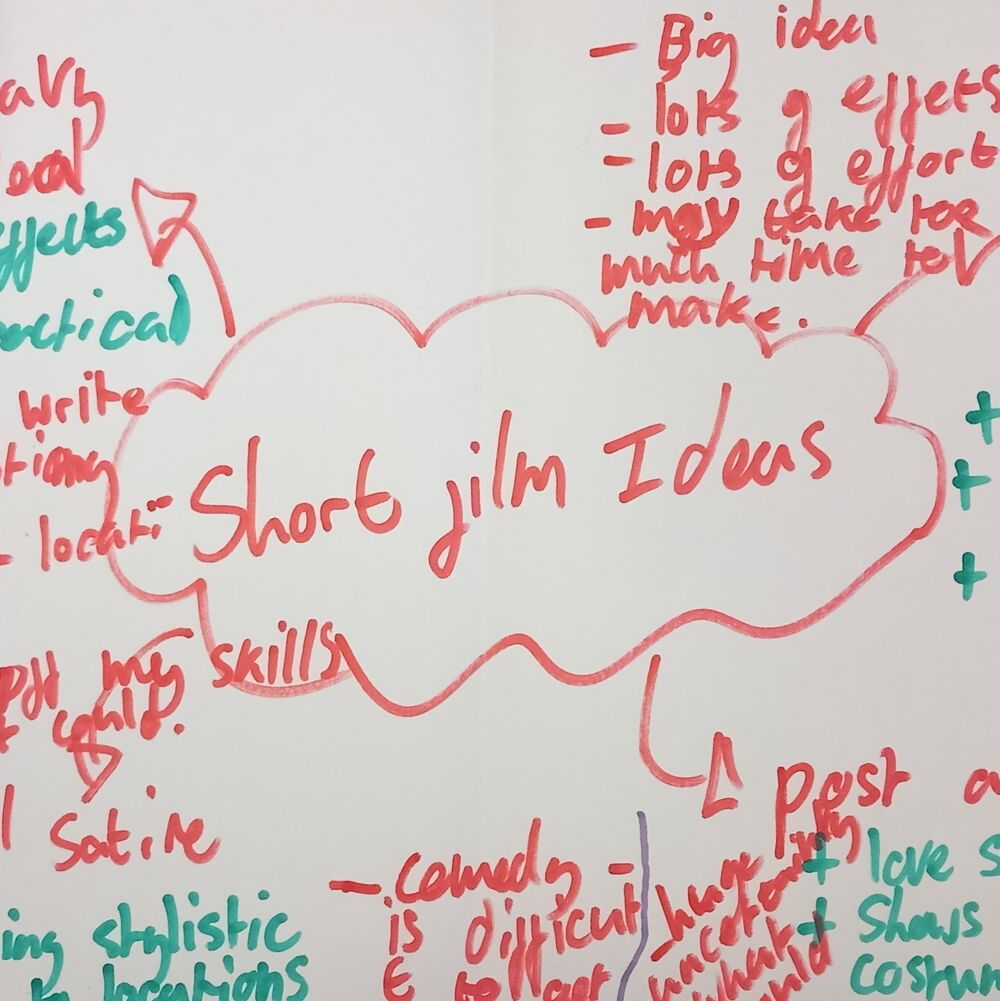 - Big idea
- lots of effets
- lots of effort
- may take too
much time to
make.
avy
effects
actical
write
- locati
Short film Ideas
my skills
could.
Satire
ing stylistic
locations
- comedy -
is difficult
to get
huge
uncot
what
Post a
+ love s
+ Shows
costum
+
+
+